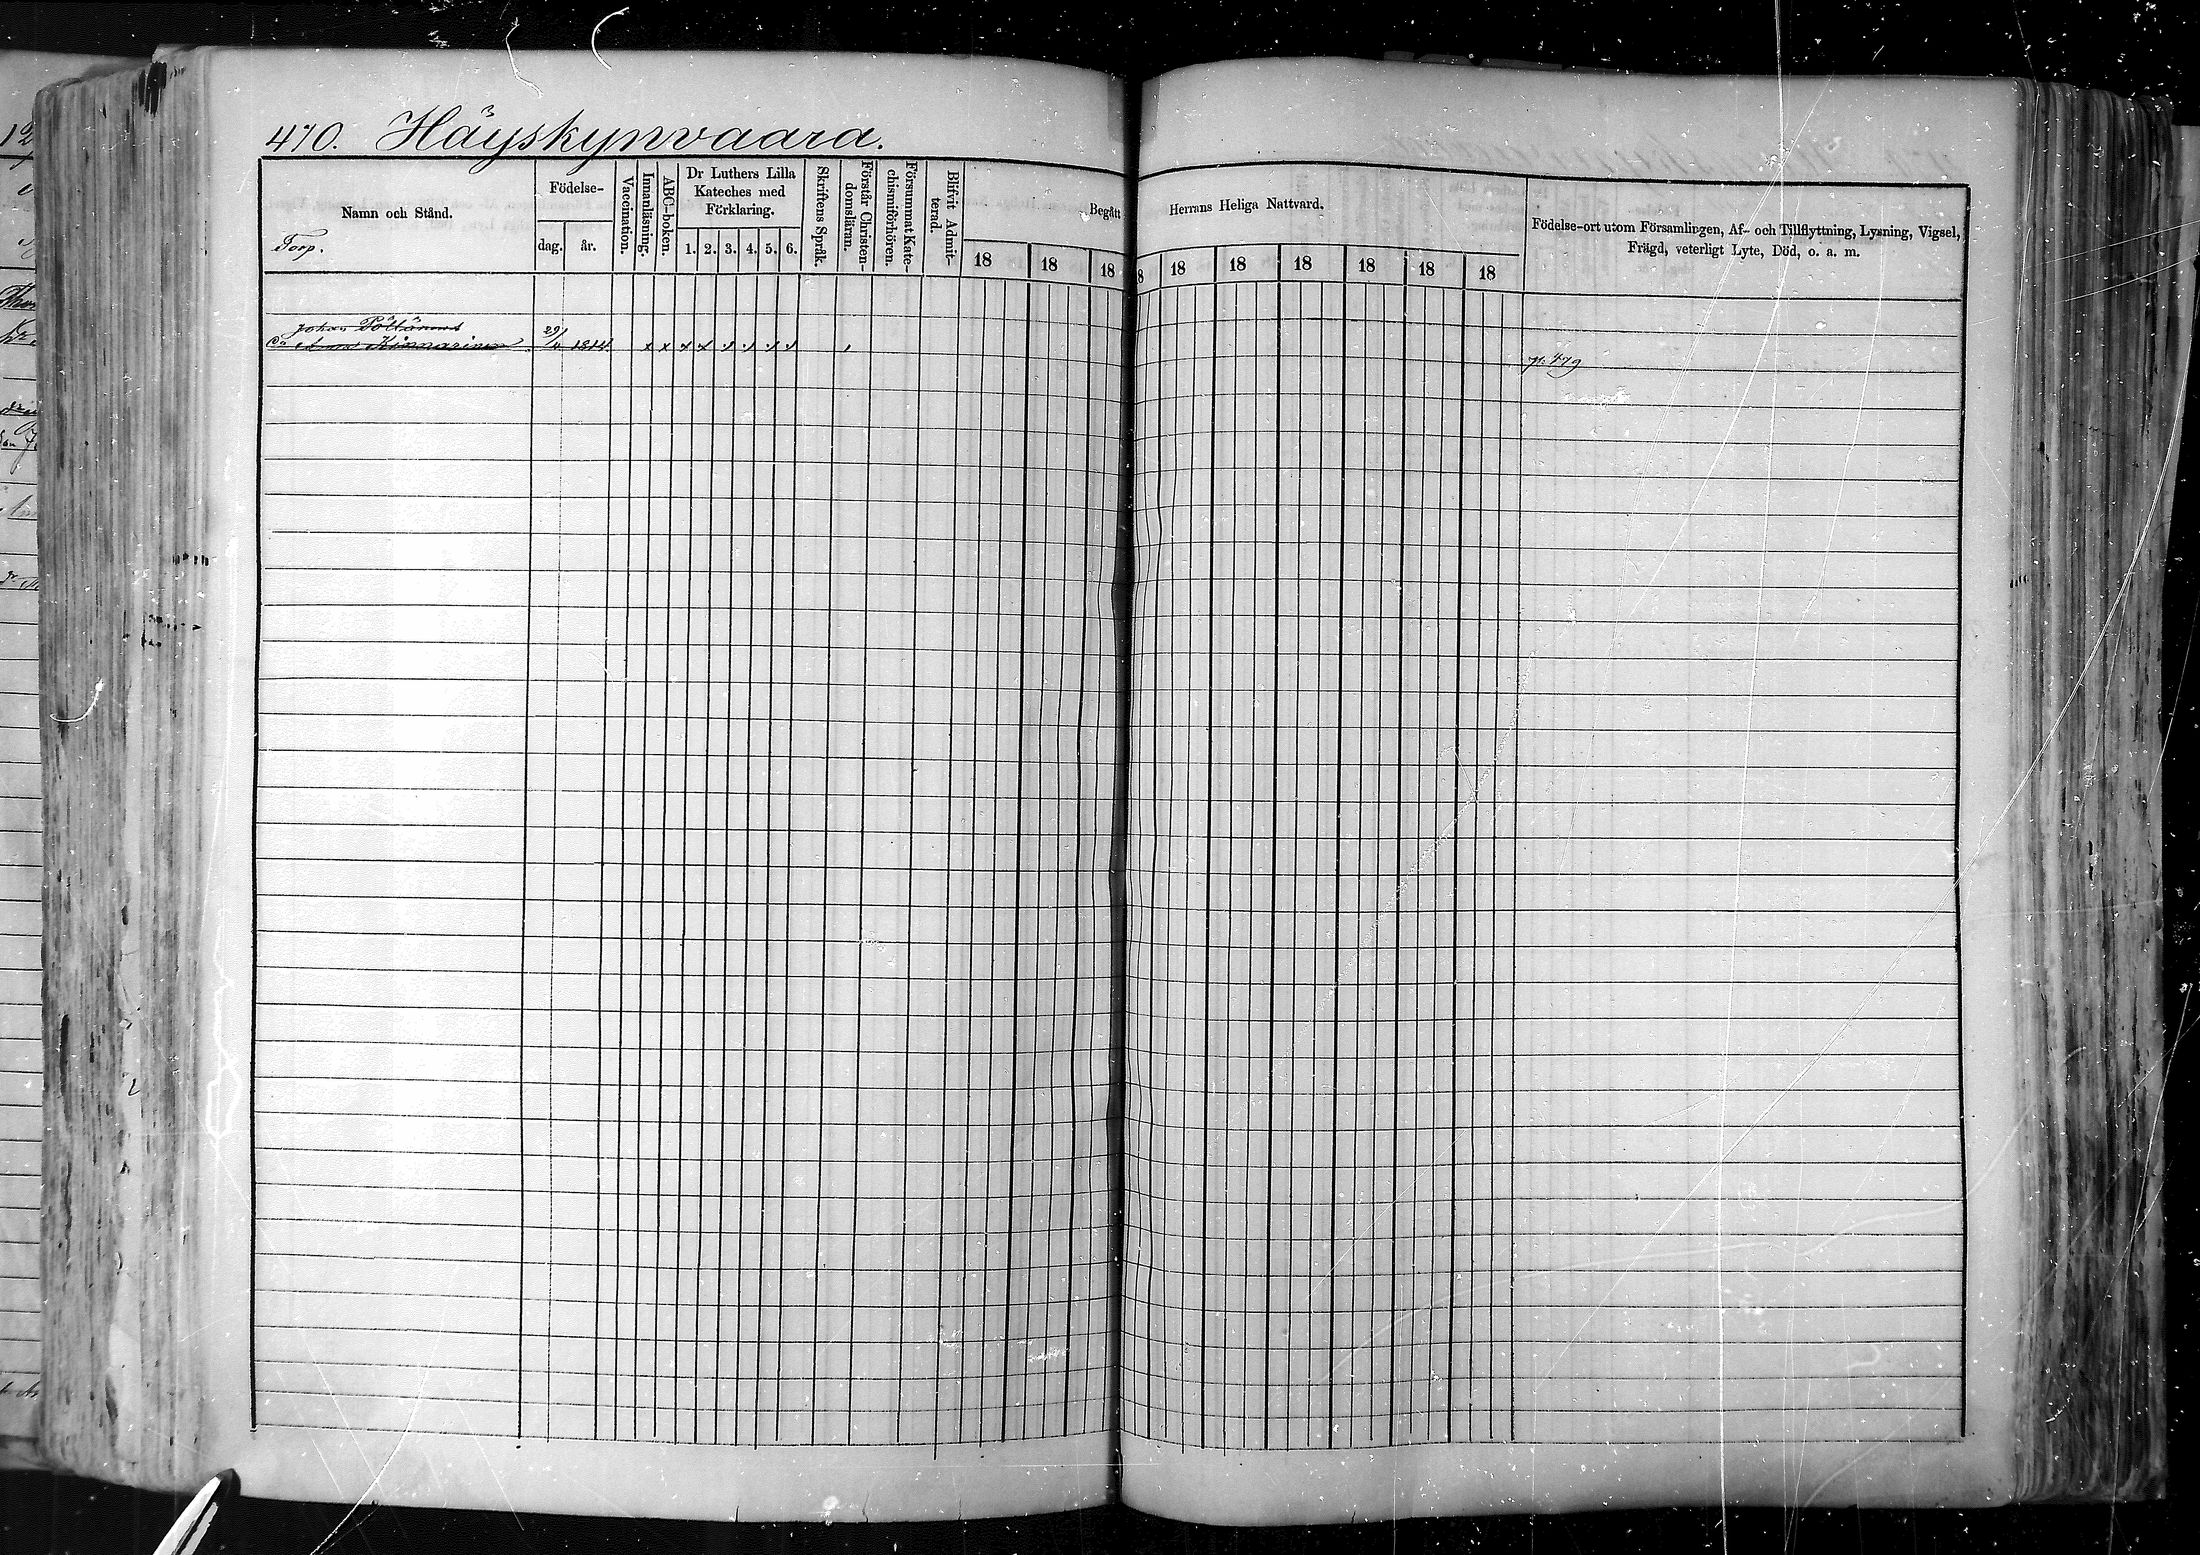 470. Häyskynvaara.
Namn och Stånd.
Torp.
Födelse-
dag. år.
Vaccination.
Innanläsning.
ABC-boken.
Dr Luthers Lilla
Kateches med
Förklaring.
1. 2. 3. 4. 5. 6.
Skriftens Språk.
Förstår Christen-
domsläran.
Försummat Kate-
chismiförhören.
Blifvit Admit-
terad.
Begått Herrans Heliga Nattvard.
18 18 18 18 18 18 18 18 18
Födelse-ort utom Församlingen, Af- och Tillflyttning, Lysning, Vigsel,
Frägd, veterligt Lyte, Död, o. a. m.
Johan Pöllänens
Ea Anna Kinnarinen 1814 x x x x
p. 479